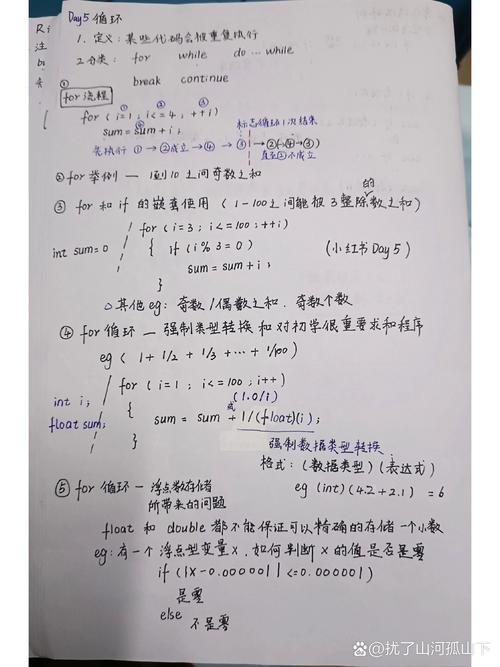 Day5 循环
1. 定义：某些代码会被重复执行
2 分类： for while do … while
break continue
① for 流程
① ② ③
for ( i=1 ; i<=4 ; ++i )
④
sum = sum + i ;
标志循环1次结果
先执行 ① → ②成立 → ④ → ③ → ②(→④→③)
直至②不成立
② for 举例 — 1到10之间奇数之和
③ for 和 if 的嵌套使用 ( 1-100之间能被3整除的数之和)
for ( i=3 ; i<=100 ; ++i )
int sum=0 { if (i%3=0) (小红书 Day5)
sum = sum + i ;
}
△ 其他eg: 奇数/偶数之和. 奇数个数
④ for 循环 — 强制类型转换和对初学很重要求和程序
eg ( 1+ 1/2 + 1/3 + … + 1/100 )
int i; for ( i=1 ; i<=100 ; i++ )
(1.0/i)
float sum; { sum = sum + 或 1/(float)(i) ;
}
强制数据类型转换
格式: (数据类型) (表达式)
eg (int)(4.2+2.1) = 6
⑤ for 循环 — 浮点数存储
所带来的问题
float 和 double 都不能保证可以精确的存储一个小数
eg: 有一个浮点型变量x, 如何判断x的值是否是零
if (|x-0.000001| <=0.000001)
是零
else
不是零
@扰了山河孤山下